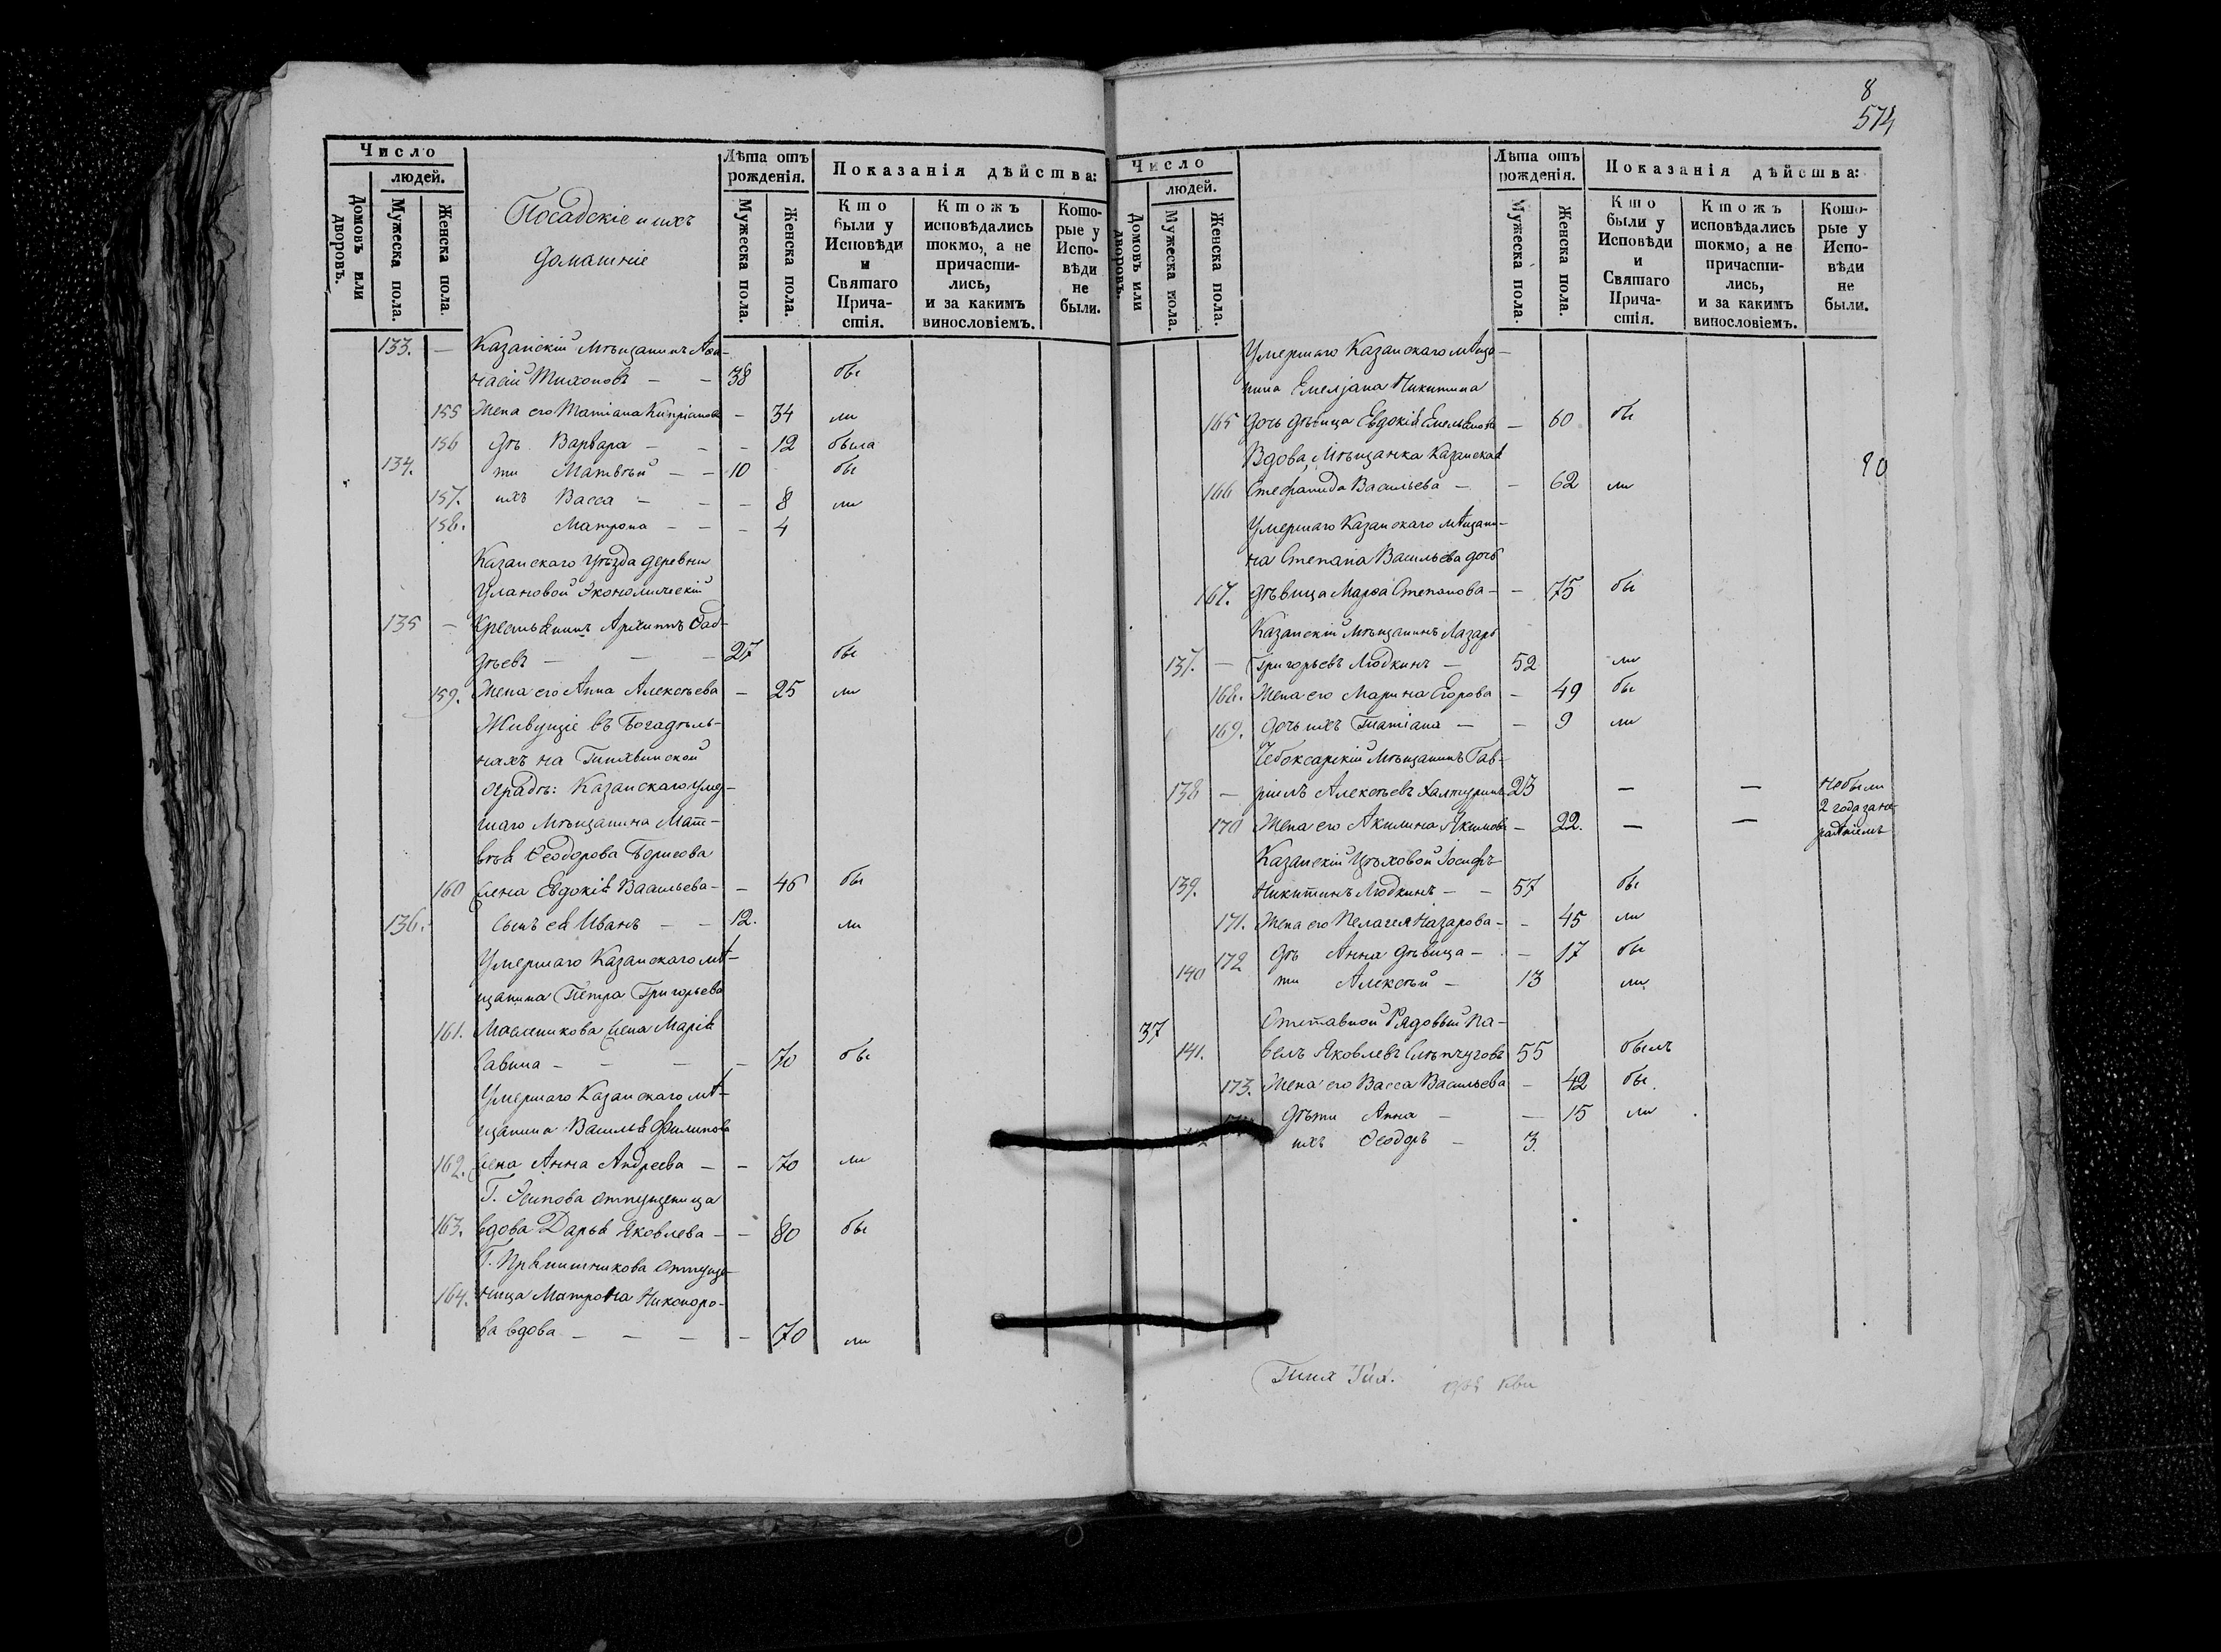 8
574
Число
людей.
Домовъ или дворовъ.
Мужеска пола.
Женска пола.
Посадскіе и ихъ
домашніе
Лѣта отъ
рожденія.
Мужеска пола.
Женска пола.
Показанія дѣйства:
Кто
были у
Исповѣди
и
Святаго
Прича-
стія.
Ктожъ
исповѣдались
токмо, а не
причасти-
лись,
и за какимъ
винословіемъ.
Кото-
рые у
Испо-
вѣди
не
были.
133. — Казанскій Мѣщанинъ Аѳа-
насій Тихоновъ — — 38 бы
155 Жена его Татіана Кипріанова — 34 ли
156 дѣ Варвара — — 12 была
134. ти Матвѣй — — 10 бы
157. ихъ Васса — — — 8 ли
158. Матрона — — — 4
Казанскаго уѣзда деревни
Улановой Экономическій
135 — Крестьянинъ Архиппъ Фад-
дѣевъ — — — 27 бы
159. Жена его Анна Алексѣева — 25 ли
Живущіе въ Богадѣль-
няхъ на Тихвинской
оградѣ: Казанскаго уме-
шаго Мѣщанина Мат-
вѣя Ѳеодорова Борисова
160 жена Евдокія Васильева — — 46 бы
136. сынъ ея Иванъ — — 12. ли
Умершаго Казанскаго мѣ-
щанина Петра Григорьева
161. Масленикова жена Марія
Савина — — — — 70 бы
Умершаго Казанскаго мѣ-
щанина Василья Филипова
162. жена Анна Андреева — — 70 ли
Г. Есипова отпущеница
163. вдова Дарья Яковлева — — 80 бы
Г. Прянишникова отпуще-
164. ница Матрона Никифоро-
ва вдова — — — — 70 ли
Число
людей.
Домовъ или дворовъ.
Мужеска пола.
Женска пола.
Лѣта отъ
рожденія.
Мужеска пола.
Женска пола.
Показанія дѣйства:
Кто
были у
Исповѣди
и
Святаго
Прича-
стія.
Ктожъ
исповѣдались
токмо, а не
причасти-
лись,
и за какимъ
винословіемъ.
Кото-
рые у
Испо-
вѣди
не
были.
Умершаго Казанскаго мѣща-
нина Емеліана Никитина
165 дочь дѣвица Евдокія Емельянова — 60 бы
Вдова, Мѣщанка Казанская
90
166 Стефанида Васильева — — 62 ли
Умершаго Казанскаго мѣщани-
на Степана Васильева дочь
167. дѣвица Марѳа Степанова — — 75 бы
Казанскій Мѣщанинъ Лазарь
137. — Григорьевъ Людкинъ — 52 ли
168. Жена его Марина Егорова — 49 бы
169. дочь ихъ Татіана — — 9 ли
Чебоксарскій Мѣщанинъ Гав-
138 — ріилъ Алексѣевъ Халтуринъ 23 — — небыли
2 года за не-
170 Жена его Акилина Якимова — 22. — — радѣніемъ
Казанскій Цѣховой Іосифъ
139. Никитинъ Людкинъ — — 57 бы
171. Жена его Пелагея Назарова — — 45 ли
172 дѣ Анна дѣвица — — 17 бы
140 ти Алексѣй — 13 ли
37 Отставной Рядовый Па-
141. велъ Яковлевъ Слѣпчуговъ 55 былъ
173. Жена его Васса Васильева — 42 бы
дѣти Анна — — 15 ли
ихъ Ѳеодоръ — 3.